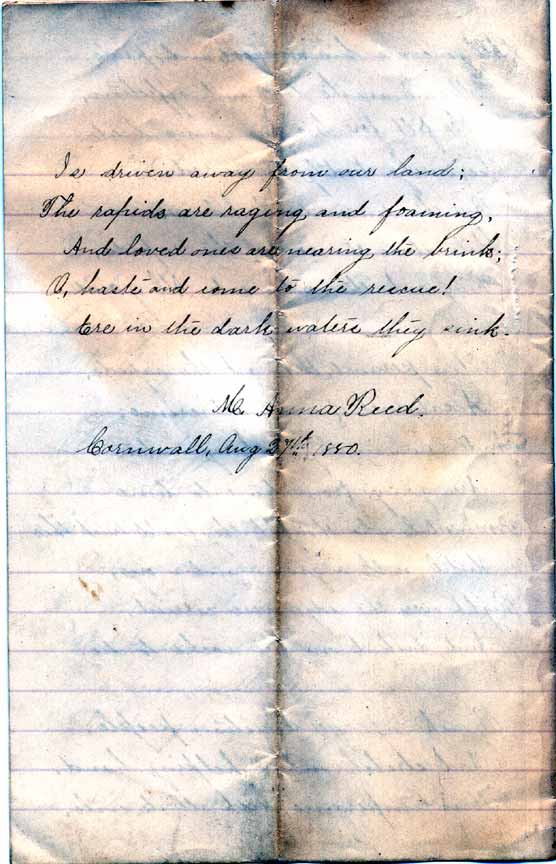 Is driven away from our land;
The rapids are raging and foaming,
And loved ones are nearing the brink;
O, haste and come to the rescue!
Ere in the dark waters they sink.
M. Anna Reed.
Cornwall, Aug 27th, 1880.